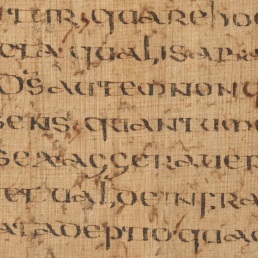 tur quare hoc
cta qualis ap
os autem non q
sens quantum
sex accerauer
et ualde infra
at adeptio quae